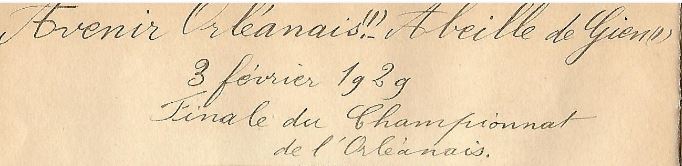 Avenir Orléanais!!)- Abeille de Gien(1)
3 février 1929
Finale du Championnat
de l'Orléanais.